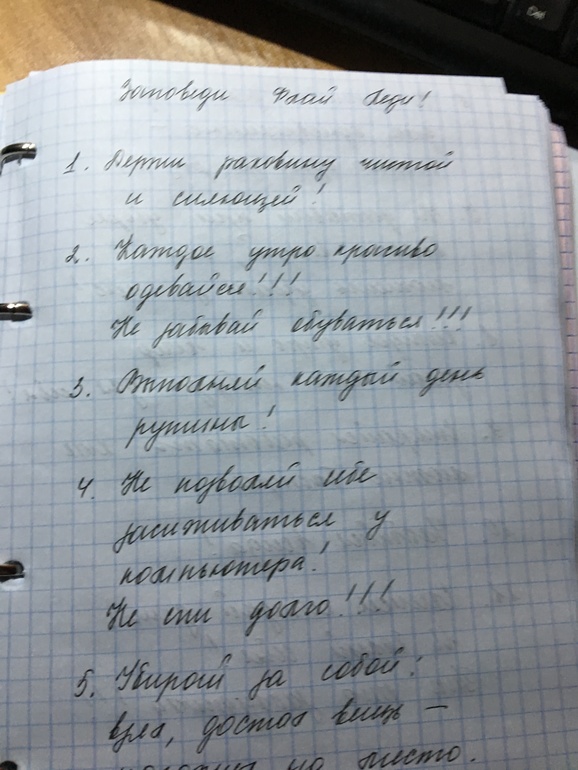 Заповеди Флай Леди!
1. Держи раковину чистой
и сияющей!
2. Каждое утро красиво
одевайся!!!
Не забывай обуваться!!!
3. Выполняй каждый день
рутины!
4. Не позволяй себе
засиживаться у
компьютера!
Не спи долго!!!
5. Убирай за собой:
взял, достал вещь –
на место.